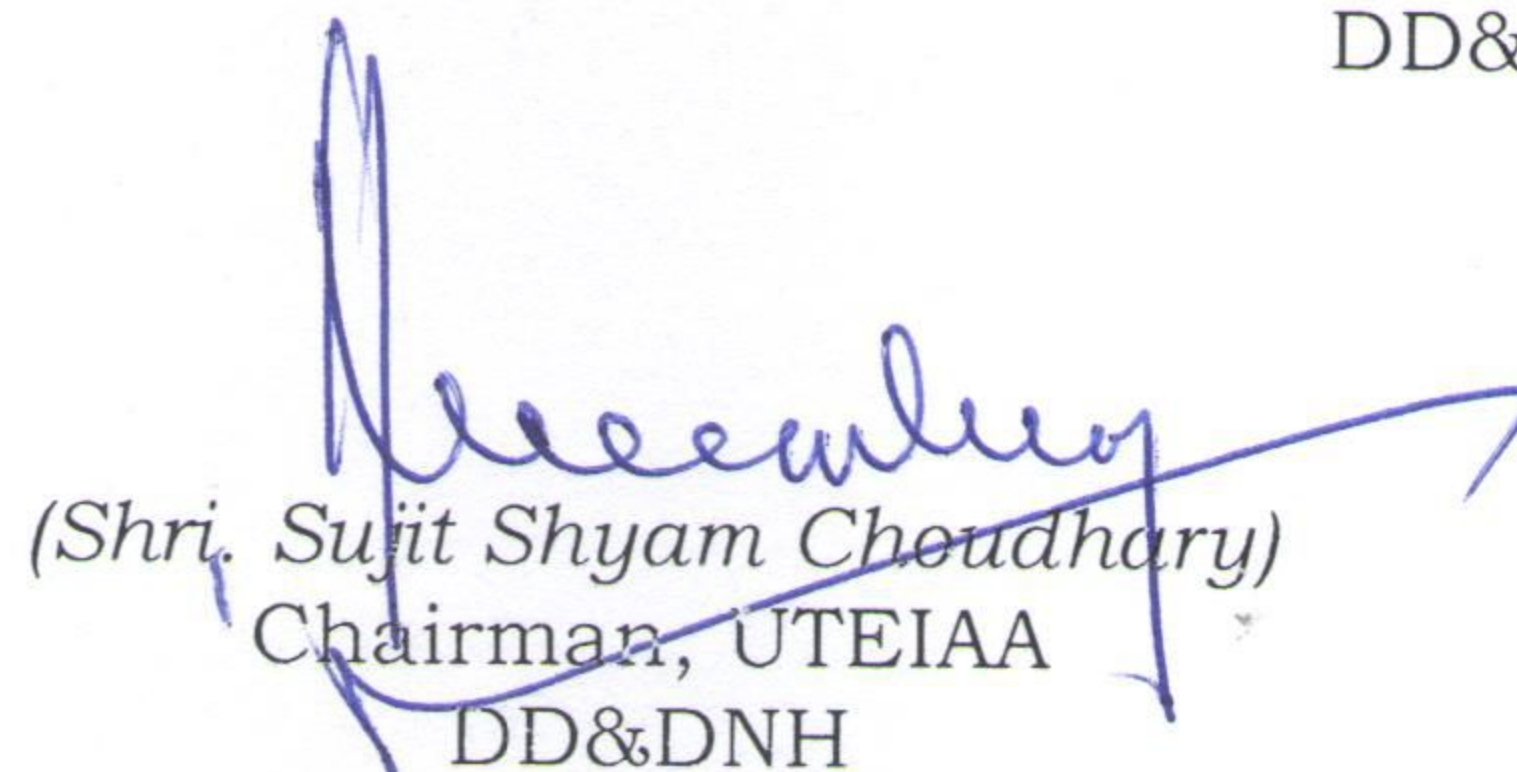 DD&
(Shri. Sujit Shyam Choudhary)
Chairman, UTEIAA
DD&DNH